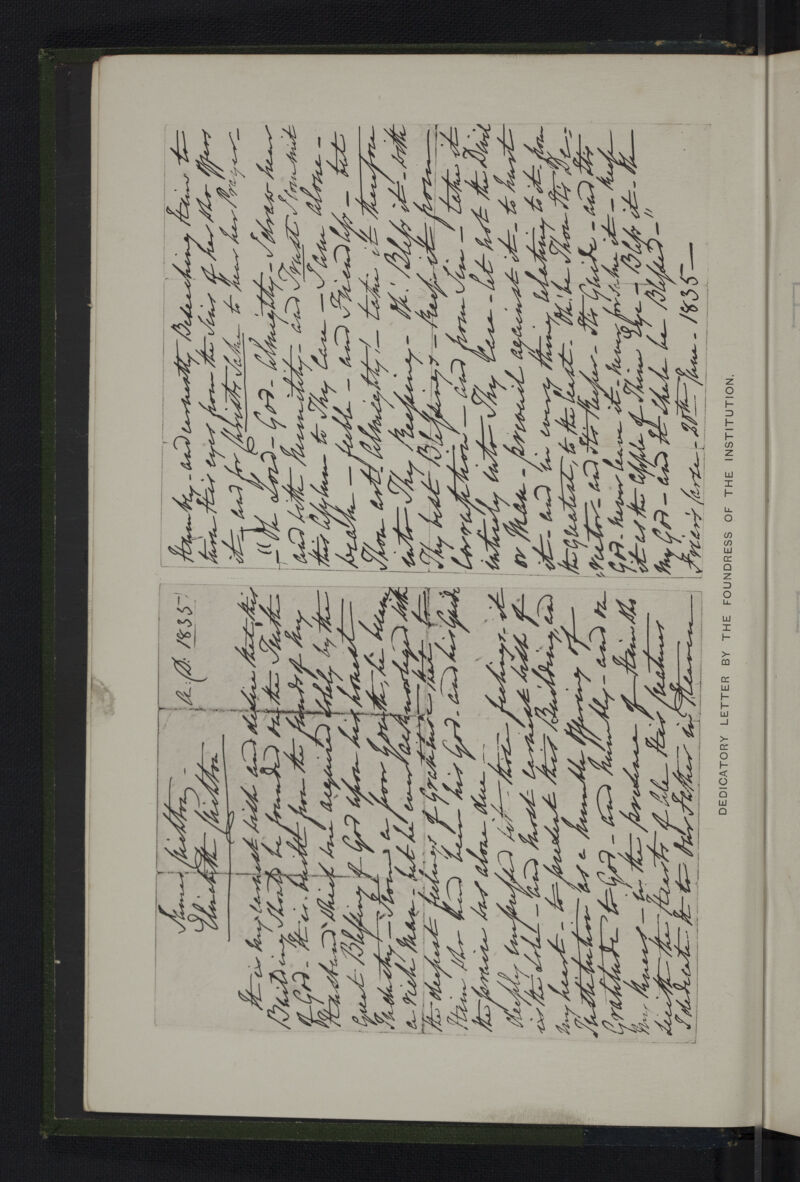 James Crichton
Elizabeth Crichton A.D. 1835
It is my earnest wish and desire that this
Building should be founded on the Faith
of God - It is built from the funds of my
Husband which were acquired solely by the
Great Blessing of God upon his honest
Industry - From a poor youth, he became
a rich Man, but he ever acknowledged with
the deepest feelings of Gratitude that to
Him who had been his God and his Guide
the praise was alone due -
Deeply impressed with these feelings, it
is the solemn and most earnest wish of
my heart - to present this Building and
Institution as a humble offering of
Gratitude to God - and humbly - and on
my knees - in the presence of Him who
seeth the Hearts of all His Creatures
I dedicate it to Our Father in Heaven
Humbly - and earnestly Beseeching Him to
turn His eyes from the Sins of her who offers
it - and for Christ's sake to hear her Prayer -
"Oh Lord - God - Almighty - I draw near
and with Humility - and Trust I commit
this Asylum to Thy Care - I am alone -
weak - feeble - and Friendless - but
Thou art Almighty! - take it therefore
into Thy Keeping - Oh! Bless it - with
Thy best Blessings - Keep it from
Corruption - and from Sin - take it
entirely into Thy Care - let not the Devil
or Man - prevail against it - to hurt
it - and in every thing relating to it from
the Greatest, to the least. Oh! be Thou Its Di=
rector - and Its Keeper - Its Guide - and Its
God - Never leave it - Never forsake it - Keep
it as the apple of Thine Eye - Bless it - Oh
My God - and It shall be Blessed -"
Friars Carse - 20th June - 1835 -
DEDICATORY LETTER BY THE FOUNDRESS OF THE INSTITUTION.